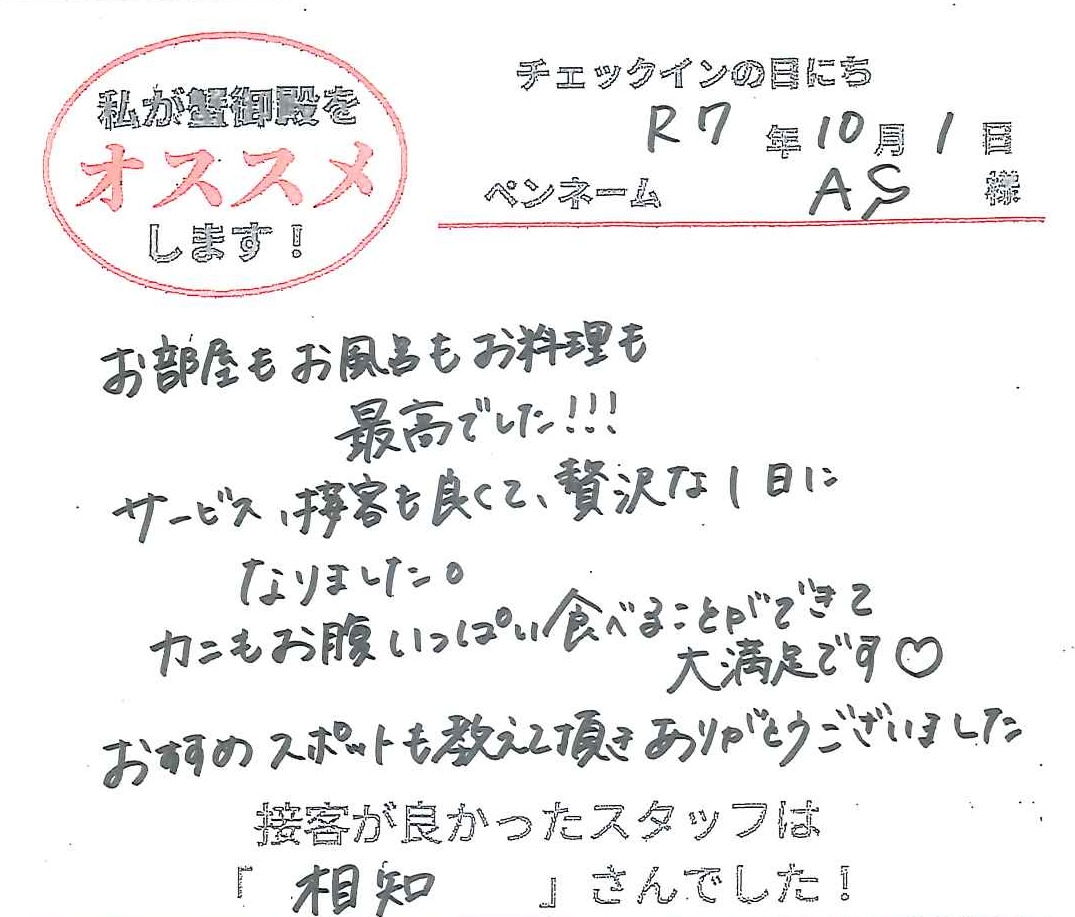 私が蟹御殿を
オススメ
します！
チェックインの日にち
R7年10月1日
ペンネーム AS 様
お部屋もお風呂もお料理も
最高でした!!!
サービス、接客も良くて、贅沢な1日に
なりました。
カニもお腹いっぱい食べることができて
大満足です♡
おすすめスポットも教えて頂きありがとうございました
接客が良かったスタッフは
「相知」さんでした！